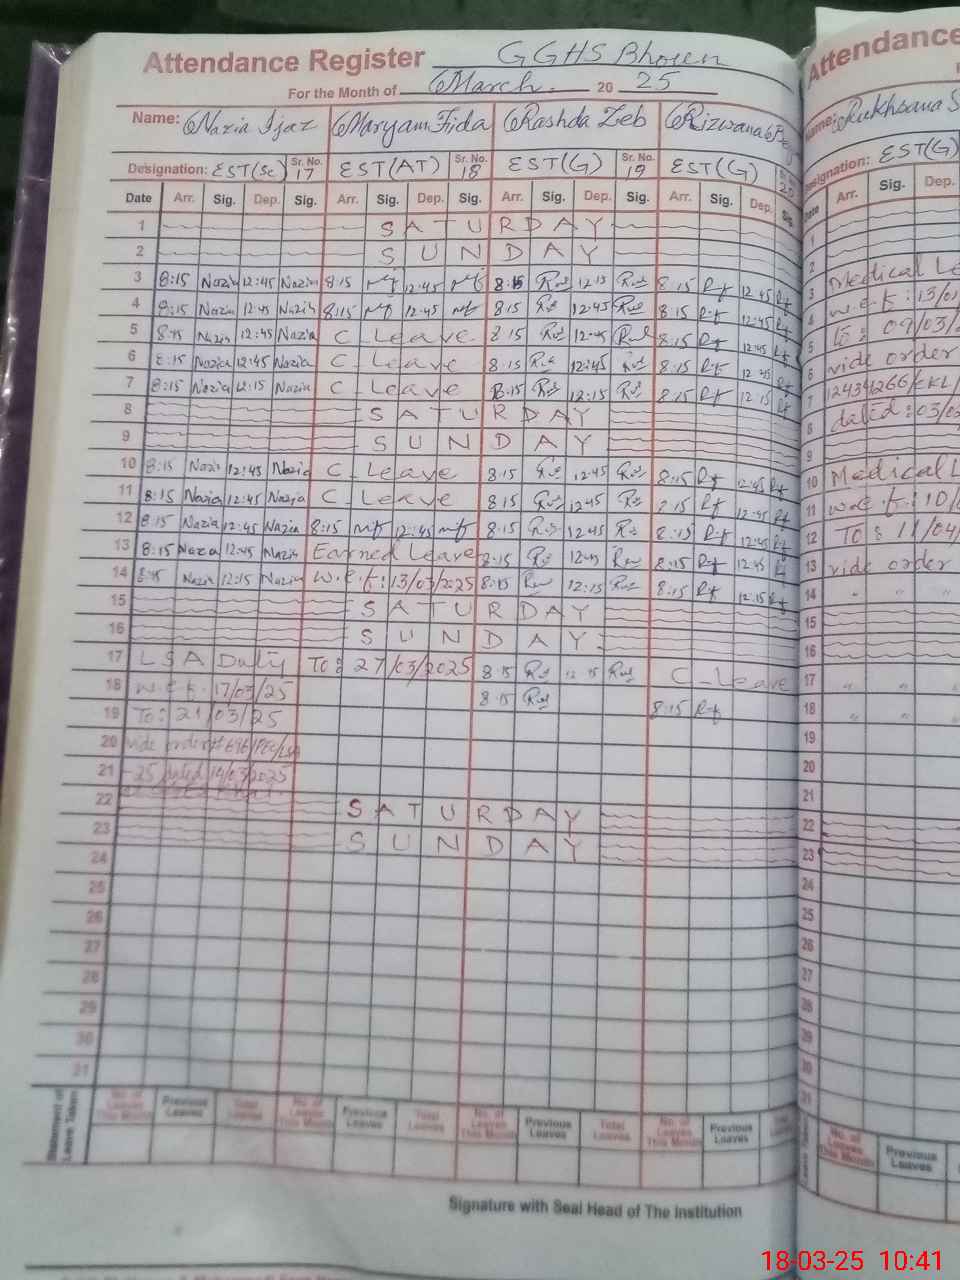 Attendance Register GGHS Bhoun
For the Month of March. 20 25
Name: Nazia Ijaz Maryam Fida Rashda Zeb Rizwana
Designation: EST(Sc) Sr. No. 17 EST(AT) Sr. No. 18 EST(G) Sr. No. 19 EST(G) 20
Date Arr. Sig. Dep. Sig. Arr. Sig. Dep. Sig. Arr. Sig. Dep. Sig. Arr. Sig. Dep. Sig.
1 SATURDAY
2 SUNDAY
3 8:15 Nazia 12:45 Nazia 8:15 mf 12:45 mf 8:15 12:15 8:15 12:45
4 8:15 Nazia 12:45 Nazia 8:15 mf 12:45 mf 8:15 12:45 8:15 12:45
5 8:15 Nazia 12:45 Nazia C-Leave 8:15 12:45 8:15 12:45
6 8:15 Nazia 12:45 Nazia C-Leave 8:15 12:45 8:15 12:45
7 8:15 Nazia 12:15 Nazia C-Leave 8:15 12:15 8:15 12:15
8 SATURDAY
9 SUNDAY
10 8:15 Nazia 12:45 Nazia C-Leave 8:15 12:45 8:15 12:45
11 8:15 Nazia 12:45 Nazia C-Leave 8:15 12:45 8:15 12:45
12 8:15 Nazia 12:45 Nazia 8:15 mf 12:45 mf 8:15 12:45 8:15 12:45
13 8:15 Nazia 12:45 Nazia Earned Leave 8:15 12:45 8:15 12:45
14 8:15 Nazia 12:15 Nazia w.e.f: 13/03/2025 8:15 12:15 8:15 12:15
15 SATURDAY
16 SUNDAY
17 LSA Duty To: 27/03/2025 8:15 12:15 C-Leave
18 w.e.f. 17/03/25 8:15 8:15
19 To: 21/03/25
20 vide order
21 -25 dated 14/03/2025
22 SATURDAY
23 SUNDAY
24
25
26
27
28
29
30
31
Statement of Leave Taken No. of Leaves This Month Previous Leaves Total Leaves No. of Leaves This Month Previous Leaves Total Leaves No. of Leaves This Month Previous Leaves Total Leaves No. of Leaves This Month Previous Leaves
Signature with Seal Head of The Institution
Attendance
Name: Rukhsana S
Designation: EST(G)
Date Arr. Sig. Dep.
1
2
3 Medical Le
4 w.e.f: 13/01
5 to: 09/03/2
6 vide order
7
8 dated: 03/0
9
10 Medical L
11 w.e.f: 10/0
12 To: 11/04/
13 vide order
14 " " "
15
16
17 " "
18 " "
19
20
21
22
23
24
25
26
27
28
29
30
31
No. of Leaves This Month Previous Leaves
18-03-25 10:41